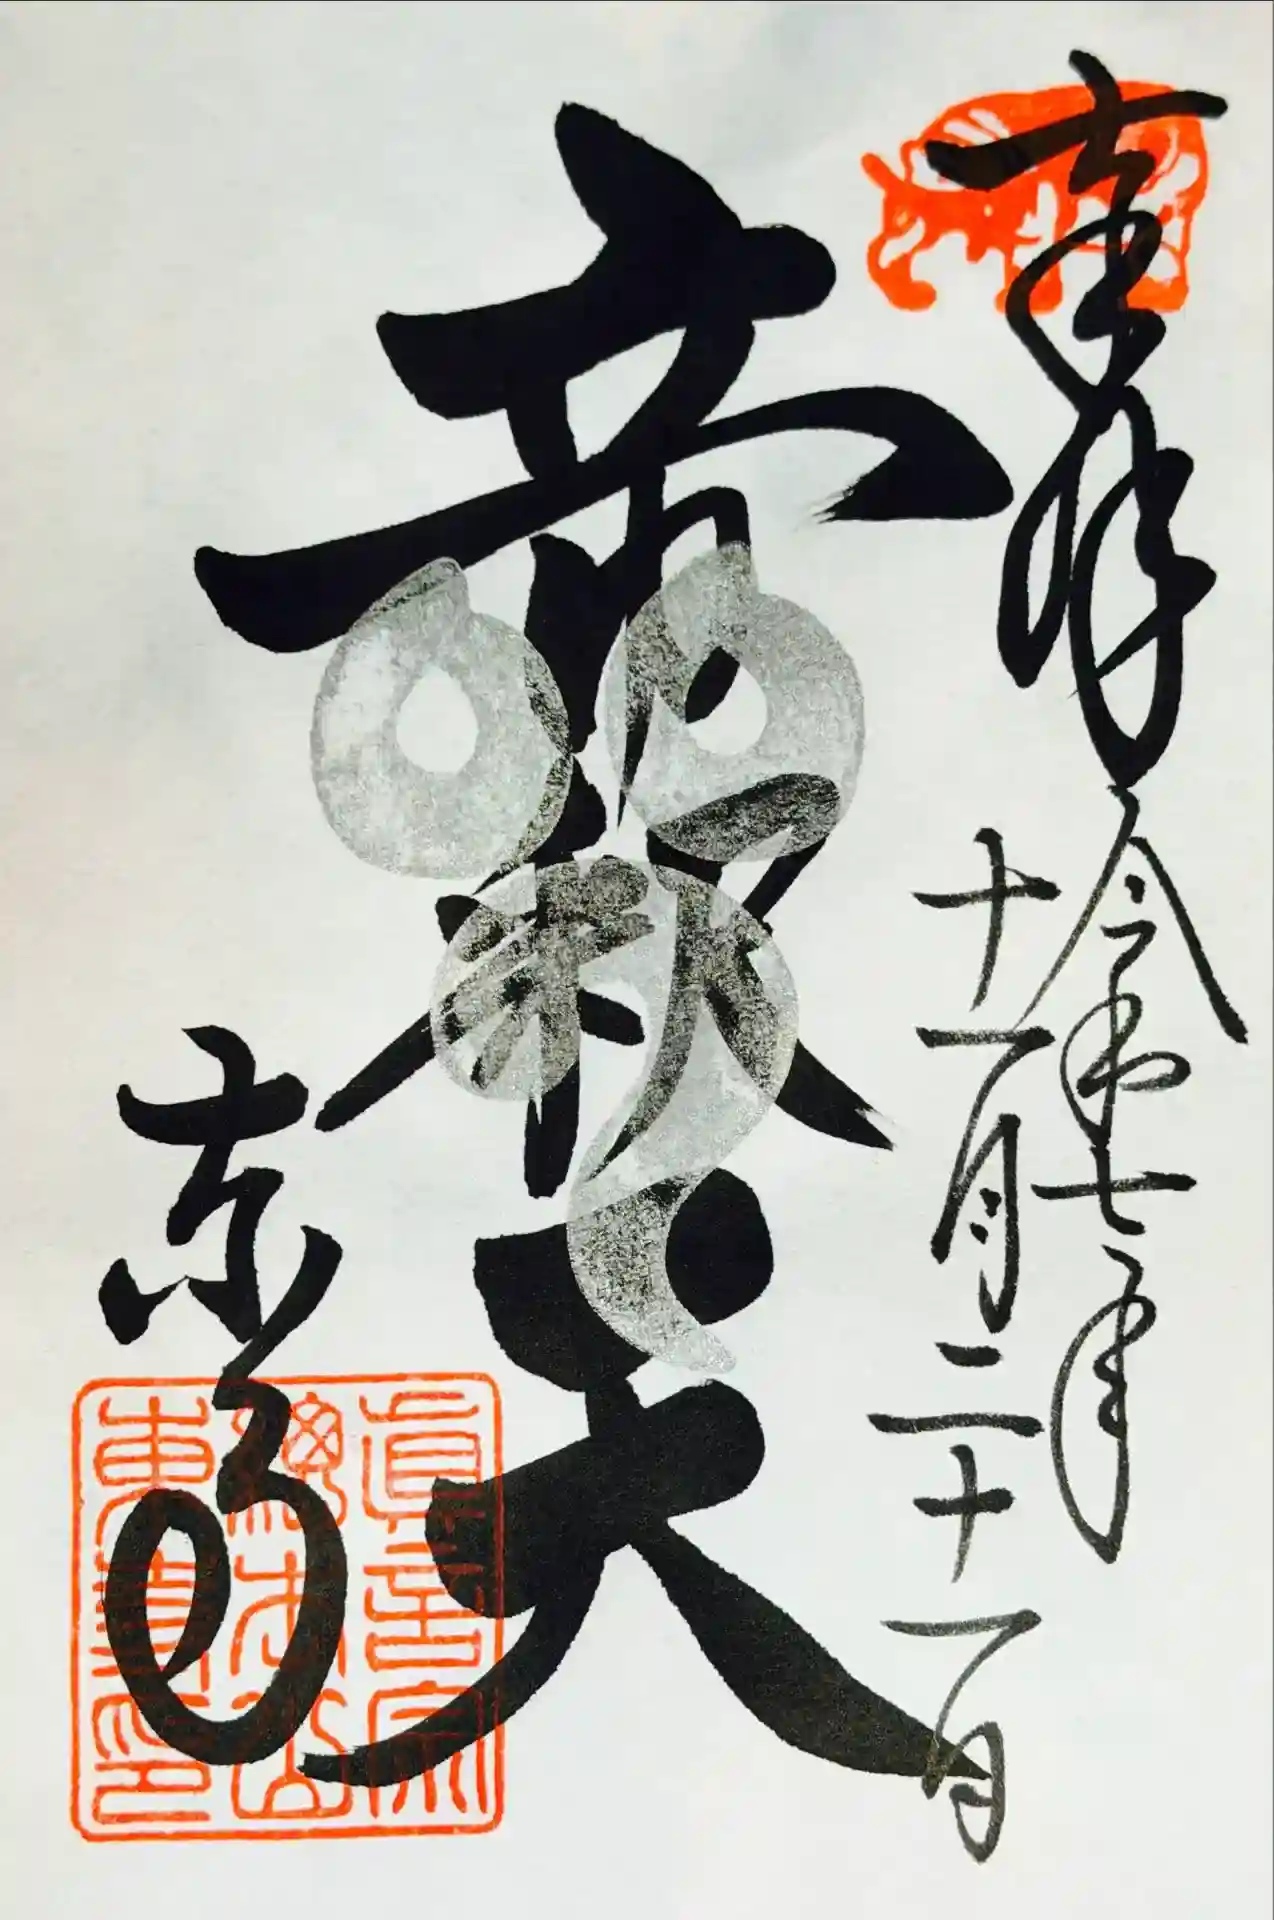 奉拝 令和七年
十一月二十一日
帝釈天
東寺
眞言宗
總本山
東寺印